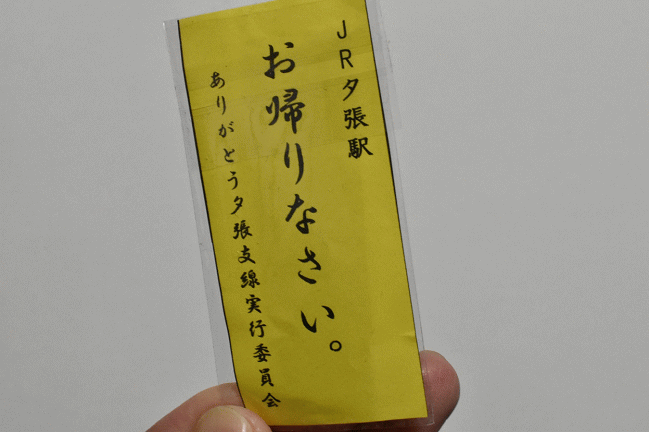 JR夕張駅
お帰りなさい。
ありがとう夕張支線実行委員会